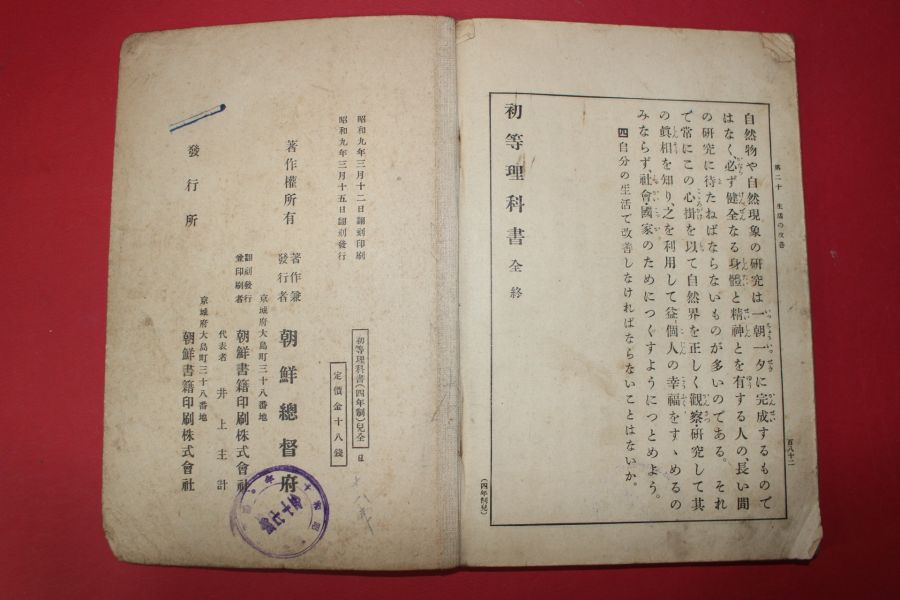 第二十 生活の改善
百八十二
自然物や自然現象の研究は一朝一夕に完成するもので
はなく、必ず健全なる身體と精神とを有する人の、長い間
の研究に待たねばならないものが多いのである。それ
で常にこの心掛を以て自然界を正しく觀察研究して其
の眞相を知り、之を利用して益個人の幸福をすゝめるの
みならず、社會國家のためにつくすようにつとめよう。
四 自分の生活で改善しなければならないことはないか。
初等理科書 全 終
(四年制兒)
初等理科書(四年制)兒全
定價金十八錢
昭和九年三月十二日飜刻印刷
昭和九年三月十五日飜刻發行
著作權所有
著作兼
發行者
朝鮮總督府
京城府大島町三十八番地
飜刻發行
兼印刷者
朝鮮書籍印刷株式會社
代表者 井上主計
京城府大島町三十八番地
發行所
朝鮮書籍印刷株式會社